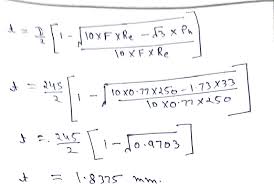 t = D/2 [1 - √(10×F×Re - √3 × Ph / 10×F×Re)]
t = 245/2 [1 - √(10×0.77×250 - 1.73×33 / 10×0.77×250)]
t = 245/2 [1 - √0.9703]
t = 1.8375 mm.